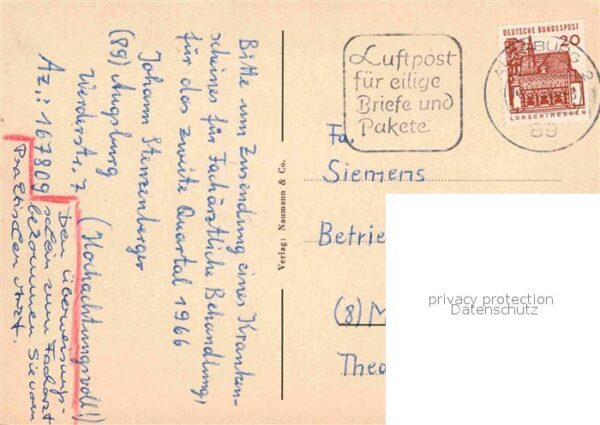 Bitte um Zusendung eines Kranken-
scheines für Fachärztliche Behandlung,
für das zweite Quartal 1966
Johann Stenzenberger
(89) Augsburg
Werderstr. 7 (Hochachtungsvoll!)
Az.: 167809
Den Überweisungs-
schein zum Facharzt
bekommen Sie vom
Praktischen Arzt.
Verlag: Naumann & Co.
Luftpost
für eilige
Briefe und
Pakete
89
DEUTSCHE BUNDESPOST
20
LORSCH/HESSEN
Fa.
Siemens
Betrie
(8) M
Thea
privacy protection
Datenschutz